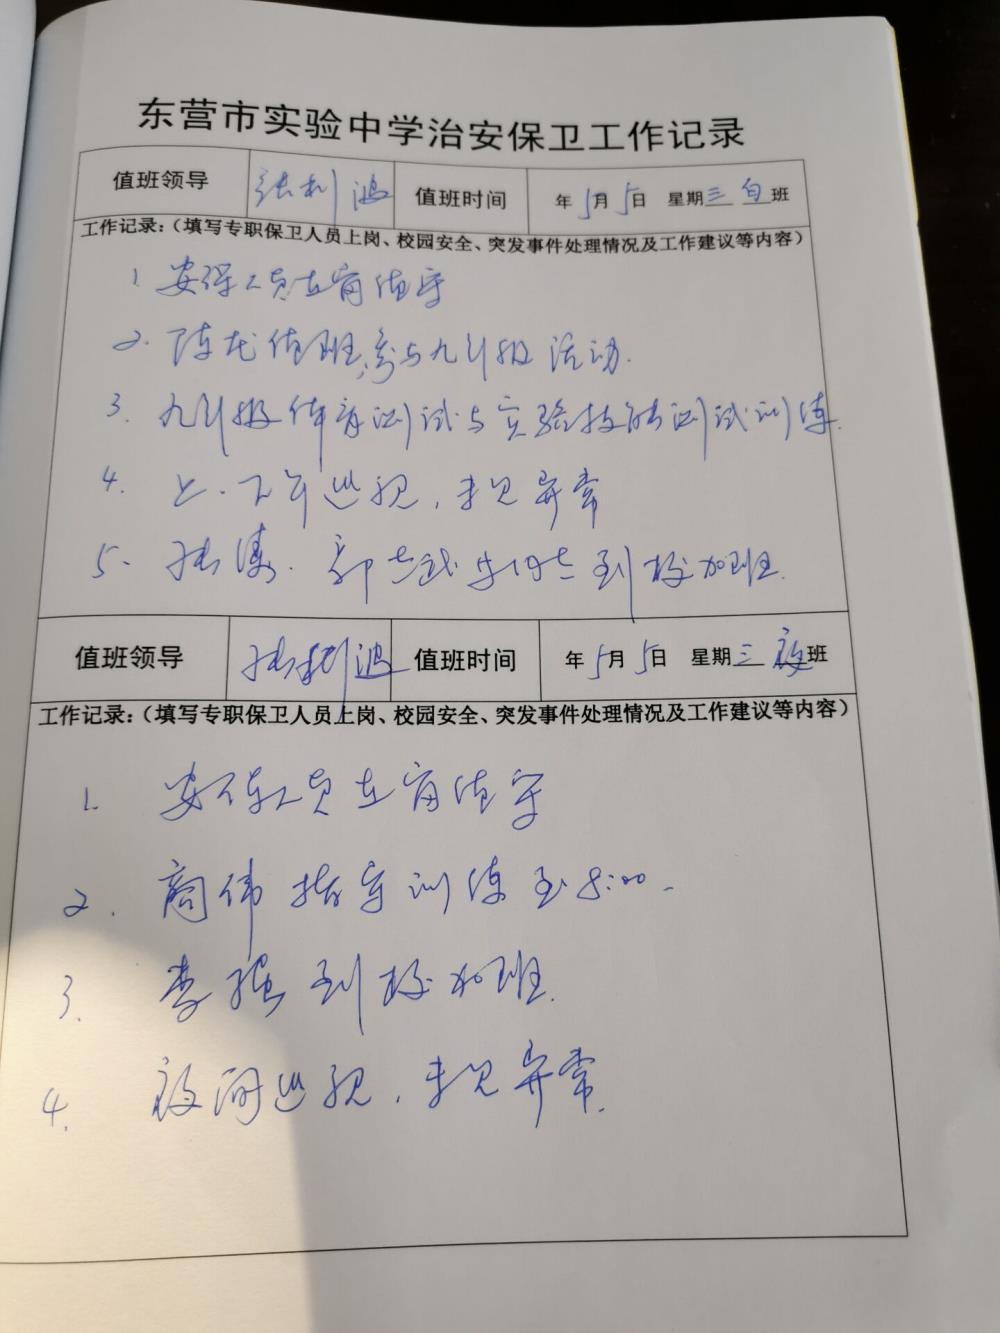 东营市实验中学治安保卫工作记录
值班领导 张利鸿 值班时间 年 5月 5日 星期三 白班
工作记录:(填写专职保卫人员上岗、校园安全、突发事件处理情况及工作建议等内容)
1. 安保人员在岗值守
2. 陈龙值班,参与九年级活动.
3. 九年级体育测试与实验技能测试训练.
4. 上、下午巡视,未见异常
5. 张涛、郭志武 到校加班.
值班领导 值班时间 年 5月 5日 星期三 夜班
工作记录:(填写专职保卫人员上岗、校园安全、突发事件处理情况及工作建议等内容)
1. 安保人员在岗值守
2. 商伟指导训练至8:00.
3. 李强到校加班.
4. 夜间巡视,未见异常.